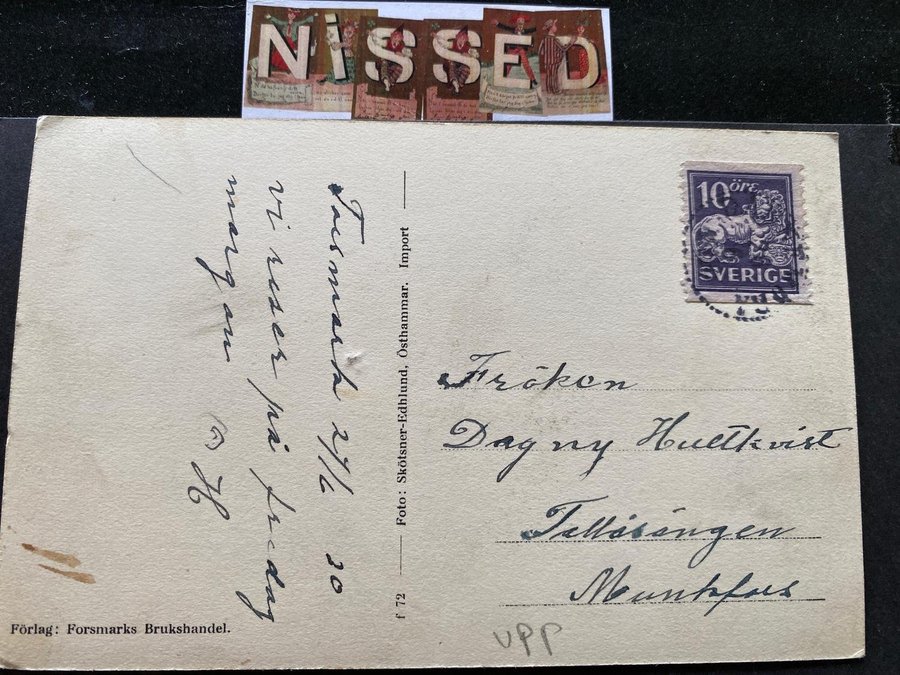 NiSSED
10 ÖRE
SVERIGE
Forsmark 24/6 30
Vi reser på fredag
morgon
H
f 72 Foto: Skötsner-Edhlund, Östhammar. Import
Fröken
Dagny Hultkvist
Tallåsängen
Munkfors
Förlag: Forsmarks Brukshandel.
UPP